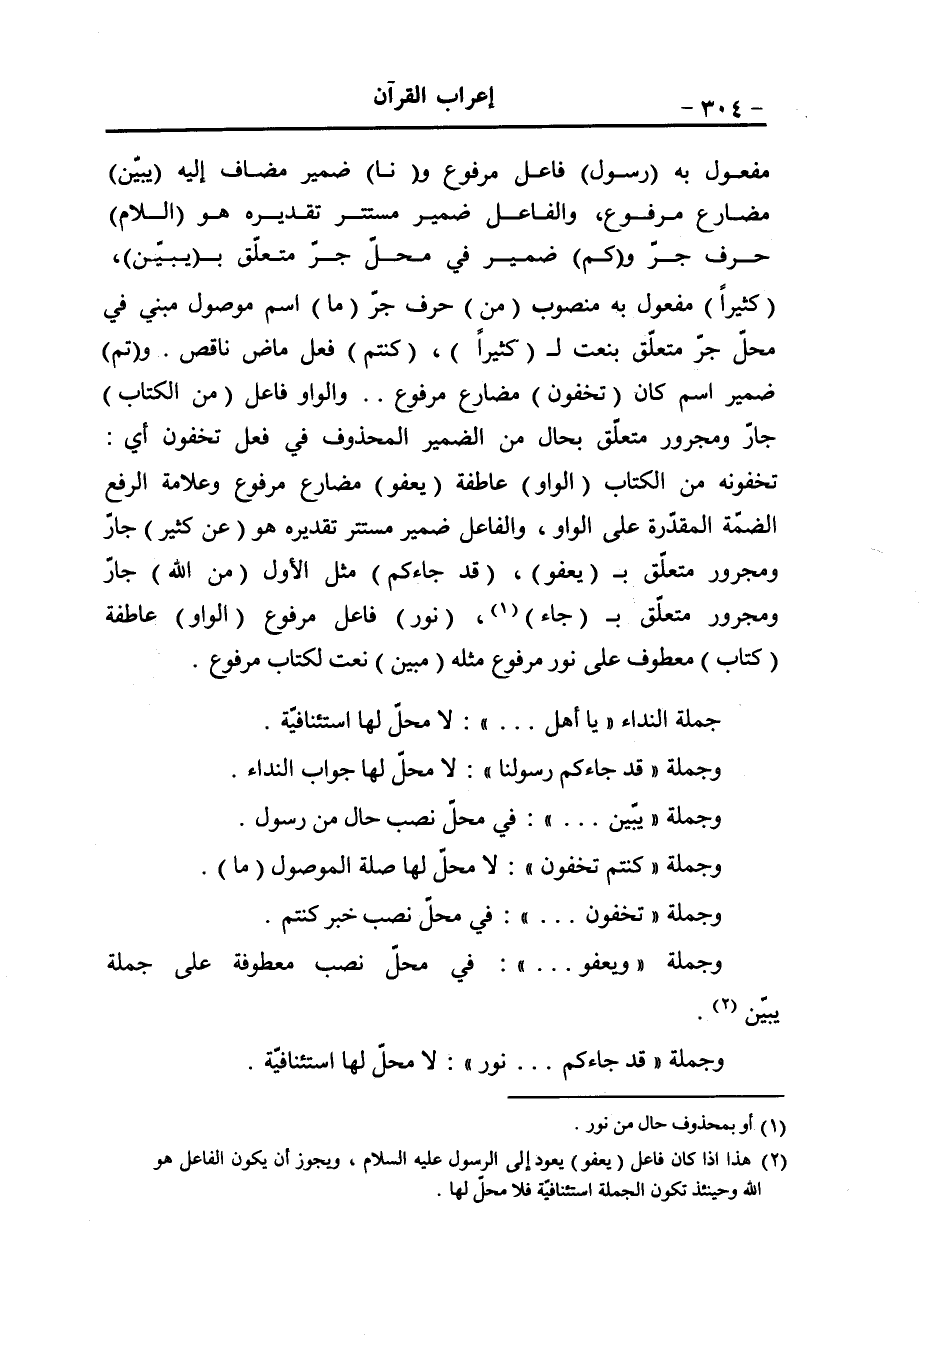 - ٣٠٤ -
إعراب القرآن
مفعول به (رسول) فاعل مرفوع و( نا) ضمير مضاف إليه (يبيّن)
مضارع مرفوع، والفاعل ضمير مستتر تقديره هو (اللام)
حرف جرّ و(كم) ضمير في محلّ جرّ متعلّق بـ(يبيّن)،
( كثيراً ) مفعول به منصوب ( من ) حرف جرّ ( ما ) اسم موصول مبني في
محلّ جرّ متعلّق بنعت لـ ( كثيراً ) ، ( كنتم ) فعل ماض ناقص . و(تم)
ضمير اسم كان ( تخفون ) مضارع مرفوع . . والواو فاعل ( من الكتاب )
جارّ ومجرور متعلّق بحال من الضمير المحذوف في فعل تخفون أي :
تخفونه من الكتاب ( الواو ) عاطفة ( يعفو ) مضارع مرفوع وعلامة الرفع
الضمّة المقدّرة على الواو ، والفاعل ضمير مستتر تقديره هو ( عن كثير ) جارّ
ومجرور متعلّق بـ ( يعفو ) ، ( قد جاءكم ) مثل الأول ( من الله ) جارّ
ومجرور متعلّق بـ ( جاء ) (١)، ( نور ) فاعل مرفوع ( الواو ) عاطفة
( كتاب ) معطوف على نور مرفوع مثله ( مبين ) نعت لكتاب مرفوع .
جملة النداء « يا أهل . . . » : لا محلّ لها استئنافيّة .
وجملة « قد جاءكم رسولنا » : لا محلّ لها جواب النداء .
وجملة « يبّين . . . » : في محلّ نصب حال من رسول .
وجملة « كنتم تخفون » : لا محلّ لها صلة الموصول ( ما ) .
وجملة « تخفون . . . » : في محلّ نصب خبر كنتم .
وجملة « ويعفو . . . » : في محلّ نصب معطوفة على جملة
يبيّن (٢) .
وجملة « قد جاءكم . . . نور » : لا محلّ لها استئنافيّة .
(١) أو بمحذوف حال من نور .
(٢) هذا اذا كان فاعل ( يعفو ) يعود إلى الرسول عليه السلام ، ويجوز أن يكون الفاعل هو
الله وحينئذ تكون الجملة استئنافيّة فلا محلّ لها .